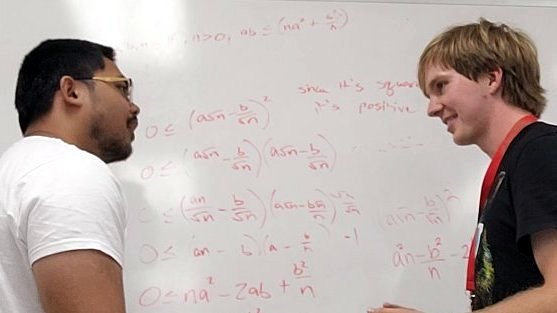 n>0, ab ≤ (na² + b²/n)
since it's square
it's positive
0 ≤ (a√n - b/√n)²
0 ≤ (a√n - b/√n)(a√n - b/√n)
≤ (an/√n - b/√n)(a√n - b√n/n) √n/√n
0 ≤ (an - b)(a - b/n)
(a√n - b/√n)²
a²n - b²/n - 2
0 ≤ na² - 2ab + b²/n